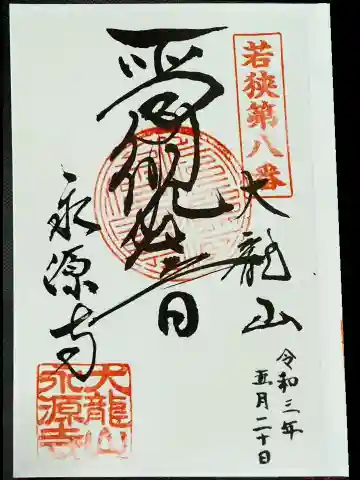 若狭第八番
大龍山
聖観世音
永源寺
令和三年
五月二十日
大龍山
永源寺